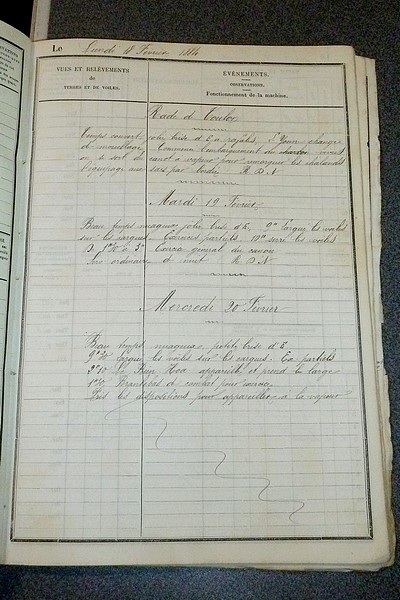 Le Lundi 18 Février 1884
VUES ET RELÈVEMENTS
de
TERRES ET DE VOILES.
ÉVÉNEMENTS.
OBSERVATIONS.
Fonctionnement de la machine.
Rade de Toulon
Temps couvert jolie brise d'E a rafales. L' change
de mouillage. Continué l'embarquement du charbon, vivres
on se sert du canot à vapeur pour remorquer les chalands
l'équipage aux sacs par bordée R D N
Mardi 19 Février
Beau temps nuageux jolie brise d'E. 9h largué les voiles
sur les cargues. Exercices partiels. 10h serré les voiles
D 1h30 à 3h Exercice général du canon
Serv ordinaire de nuit R D N
Mercredi 20 Février
Beau temps nuageux petite brise d'E
9h30 largué les voiles sur les cargues. Ex partiels
2h10 le appareille et prend le large
1h30 Branlebas de combat pour exercice
Pris les dispositions pour appareiller à la vapeur